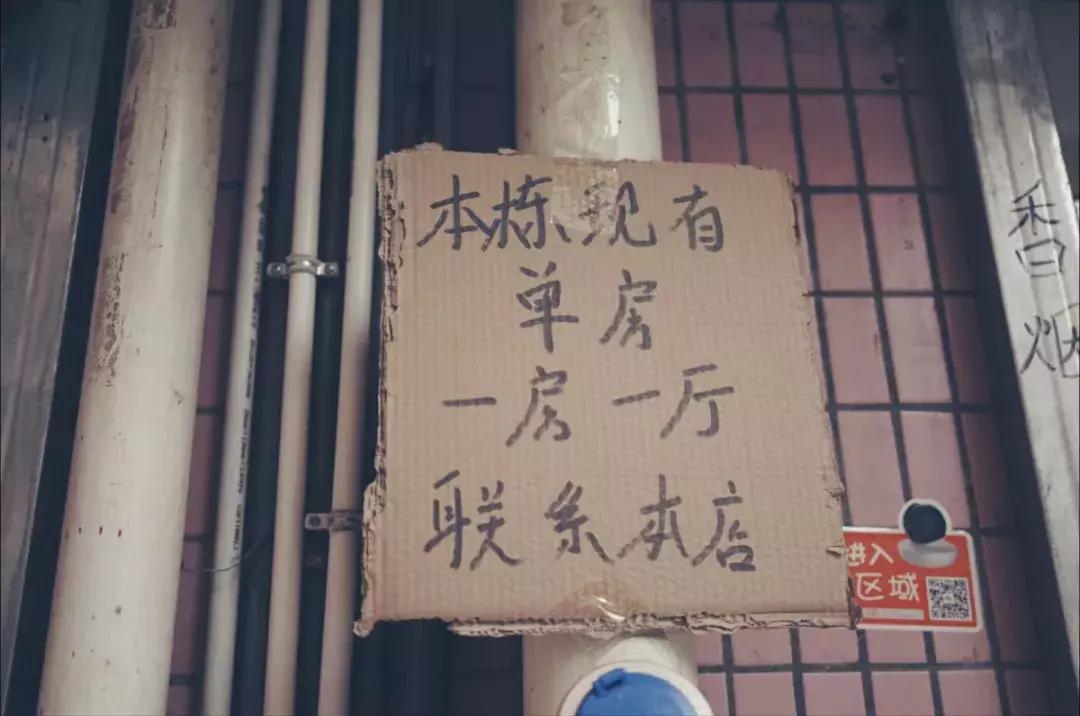 本栋现有
单房
一房一厅
联系本店
进入
区域
香烟